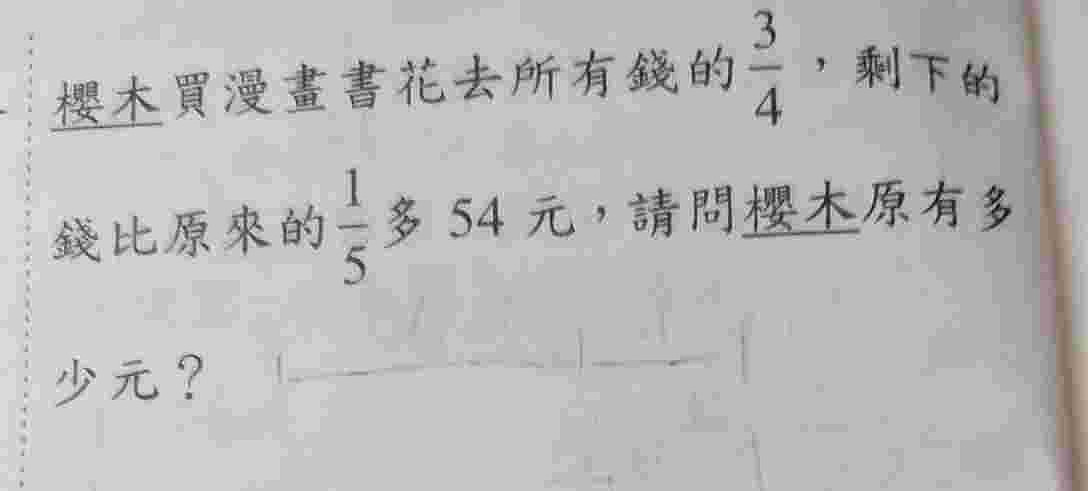 櫻木買漫畫書花去所有錢的3/4，剩下的
錢比原來的1/5多 54 元，請問櫻木原有多
少元？